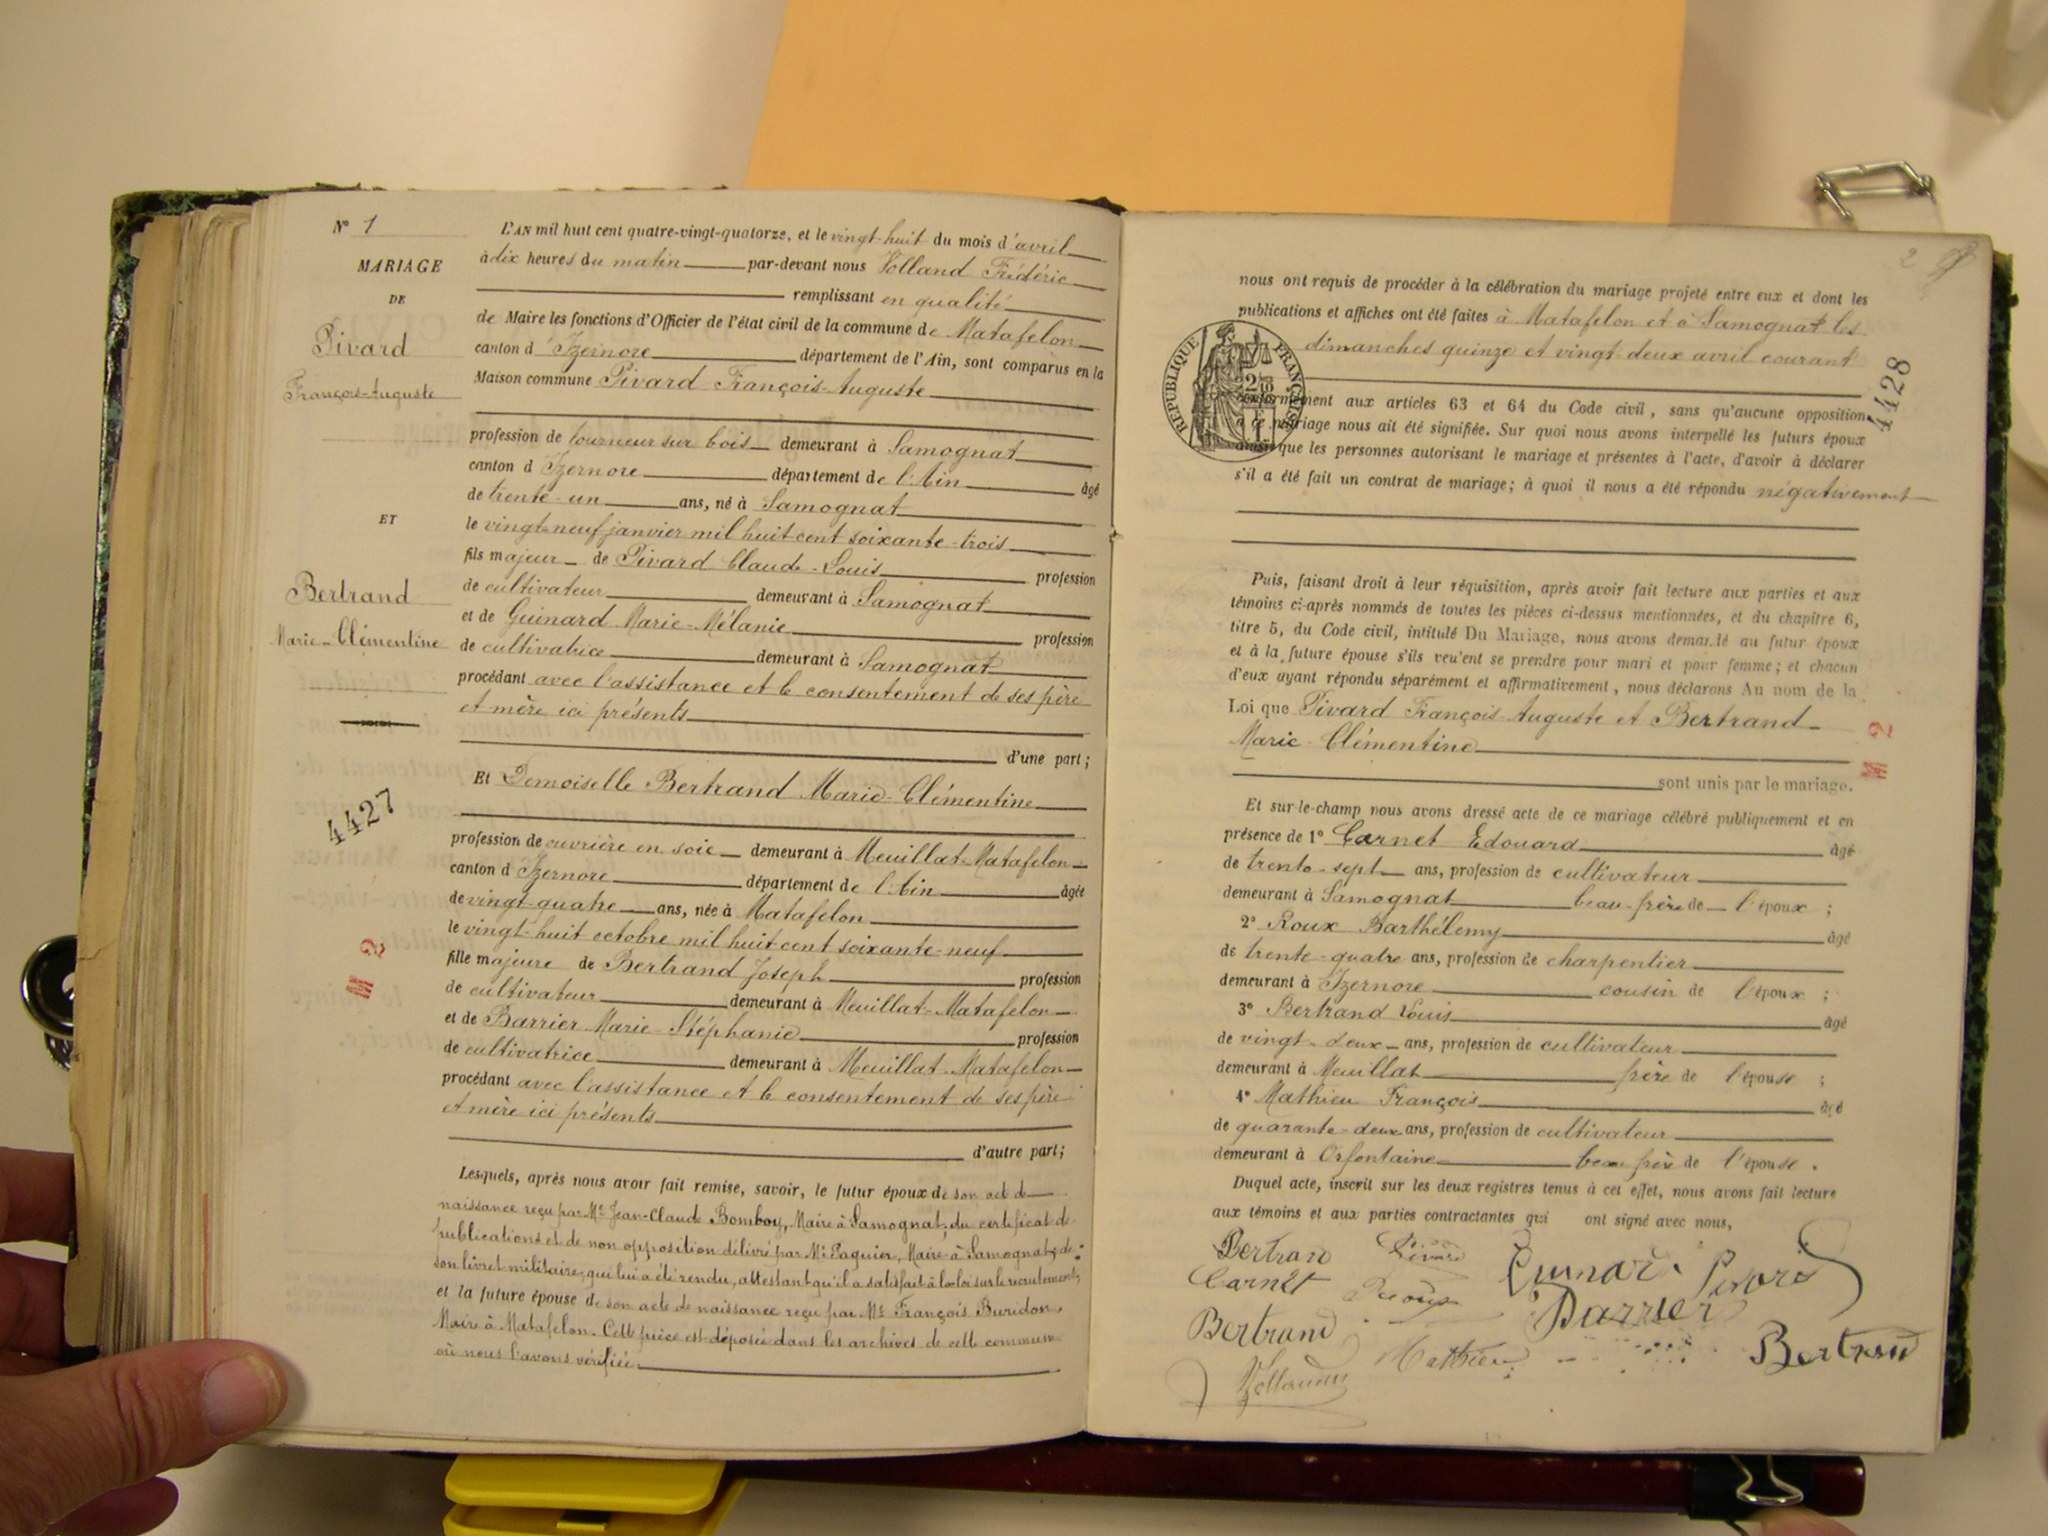 N° 1
MARIAGE
DE
Pivard
François-Auguste
ET
Bertrand
Marie-Clémentine
4427
L'AN mil huit cent quatre-vingt-quatorze, et le vingt-huit du mois d'avril
à dix heures du matin par-devant nous Volland Frédéric
remplissant en qualité
de Maire les fonctions d'Officier de l'état civil de la commune de Matafelon
canton d'Izernore département de l'Ain, sont comparus en la
Maison commune Pivard François-Auguste
profession de tourneur sur bois demeurant à Samognat
canton d'Izernore département de l'Ain âgé
de trente-un ans, né à Samognat
le vingt-neuf janvier mil huit cent soixante-trois
fils majeur de Pivard Claude-Louis profession
de cultivateur demeurant à Samognat
et de Guinard Marie-Mélanie profession
de cultivatrice demeurant à Samognat
procédant avec l'assistance et le consentement de ses père
et mère ici présents
d'une part;
Et Demoiselle Bertrand Marie-Clémentine
profession de ouvrière en soie demeurant à Meuillat-Matafelon
canton d'Izernore département de l'Ain âgée
de vingt-quatre ans, née à Matafelon
le vingt-huit octobre mil huit cent soixante-neuf
fille majeure de Bertrand Joseph profession
de cultivateur demeurant à Meuillat-Matafelon
et de Barrier Marie-Stéphanie profession
de cultivatrice demeurant à Meuillat-Matafelon
procédant avec l'assistance et le consentement de ses père
et mère ici présents
d'autre part;
Lesquels, après nous avoir fait remise, savoir, le futur époux de son acte de
naissance reçu par Mr Jean-Claude Bomboy, Maire à Samognat; du certificat de
publications et de non opposition délivré par Mr Paquier, Maire à Samognat; de
son livret militaire, qui lui a été rendu, attestant qu'il a satisfait à la loi sur le recrutement;
et la future épouse de son acte de naissance reçu par Mr François Buridon,
Maire à Matafelon. Cette pièce est déposée dans les archives de cette commune
où nous l'avons vérifiée
2
nous ont requis de procéder à la célébration du mariage projeté entre eux et dont les
publications et affiches ont été faites à Matafelon et à Samognat les
dimanches quinze et vingt-deux avril courant
RÉPUBLIQUE FRANÇAISE
4428
conformément aux articles 63 et 64 du Code civil, sans qu'aucune opposition
à ce mariage nous ait été signifiée. Sur quoi nous avons interpellé les futurs époux
ainsi que les personnes autorisant le mariage et présentes à l'acte, d'avoir à déclarer
s'il a été fait un contrat de mariage; à quoi il nous a été répondu négativement
Puis, faisant droit à leur réquisition, après avoir fait lecture aux parties et aux
témoins ci-après nommés de toutes les pièces ci-dessus mentionnées, et du chapitre 6,
titre 5, du Code civil, intitulé Du Mariage, nous avons demandé au futur époux
et à la future épouse s'ils veulent se prendre pour mari et pour femme; et chacun
d'eux ayant répondu séparément et affirmativement, nous déclarons Au nom de la
Loi que Pivard François-Auguste et Bertrand
Marie-Clémentine
sont unis par le mariage.
Et sur-le-champ nous avons dressé acte de ce mariage célébré publiquement et en
présence de 1° Carnet Edouard âgé
de trente-sept ans, profession de cultivateur
demeurant à Samognat beau-frère de l'époux ;
2° Roux Barthélemy âgé
de trente-quatre ans, profession de charpentier
demeurant à Izernore cousin de l'époux ;
3° Bertrand Louis âgé
de vingt-deux ans, profession de cultivateur
demeurant à Meuillat frère de l'épouse ;
4° Mathieu François âgé
de quarante-deux ans, profession de cultivateur
demeurant à Orfontaine beau frère de l'épouse.
Duquel acte, inscrit sur les deux registres tenus à cet effet, nous avons fait lecture
aux témoins et aux parties contractantes qui ont signé avec nous,
Bertran Pivard Guinard Pivard
Carnet Roux Barrier
Bertrand Mathieu Bertrand
Volland